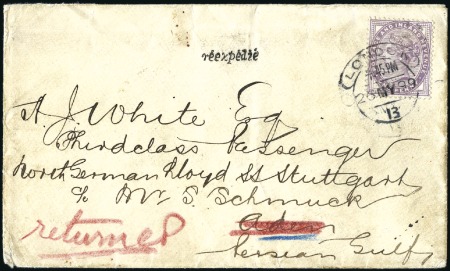 réexpédié
LONDON
26 MY 99
13
A J. White Esq
Third class Passenger
North German Lloyd SS Stuttgart
c/o Mr S. Schmuck
Aden
Persian Gulf
returned